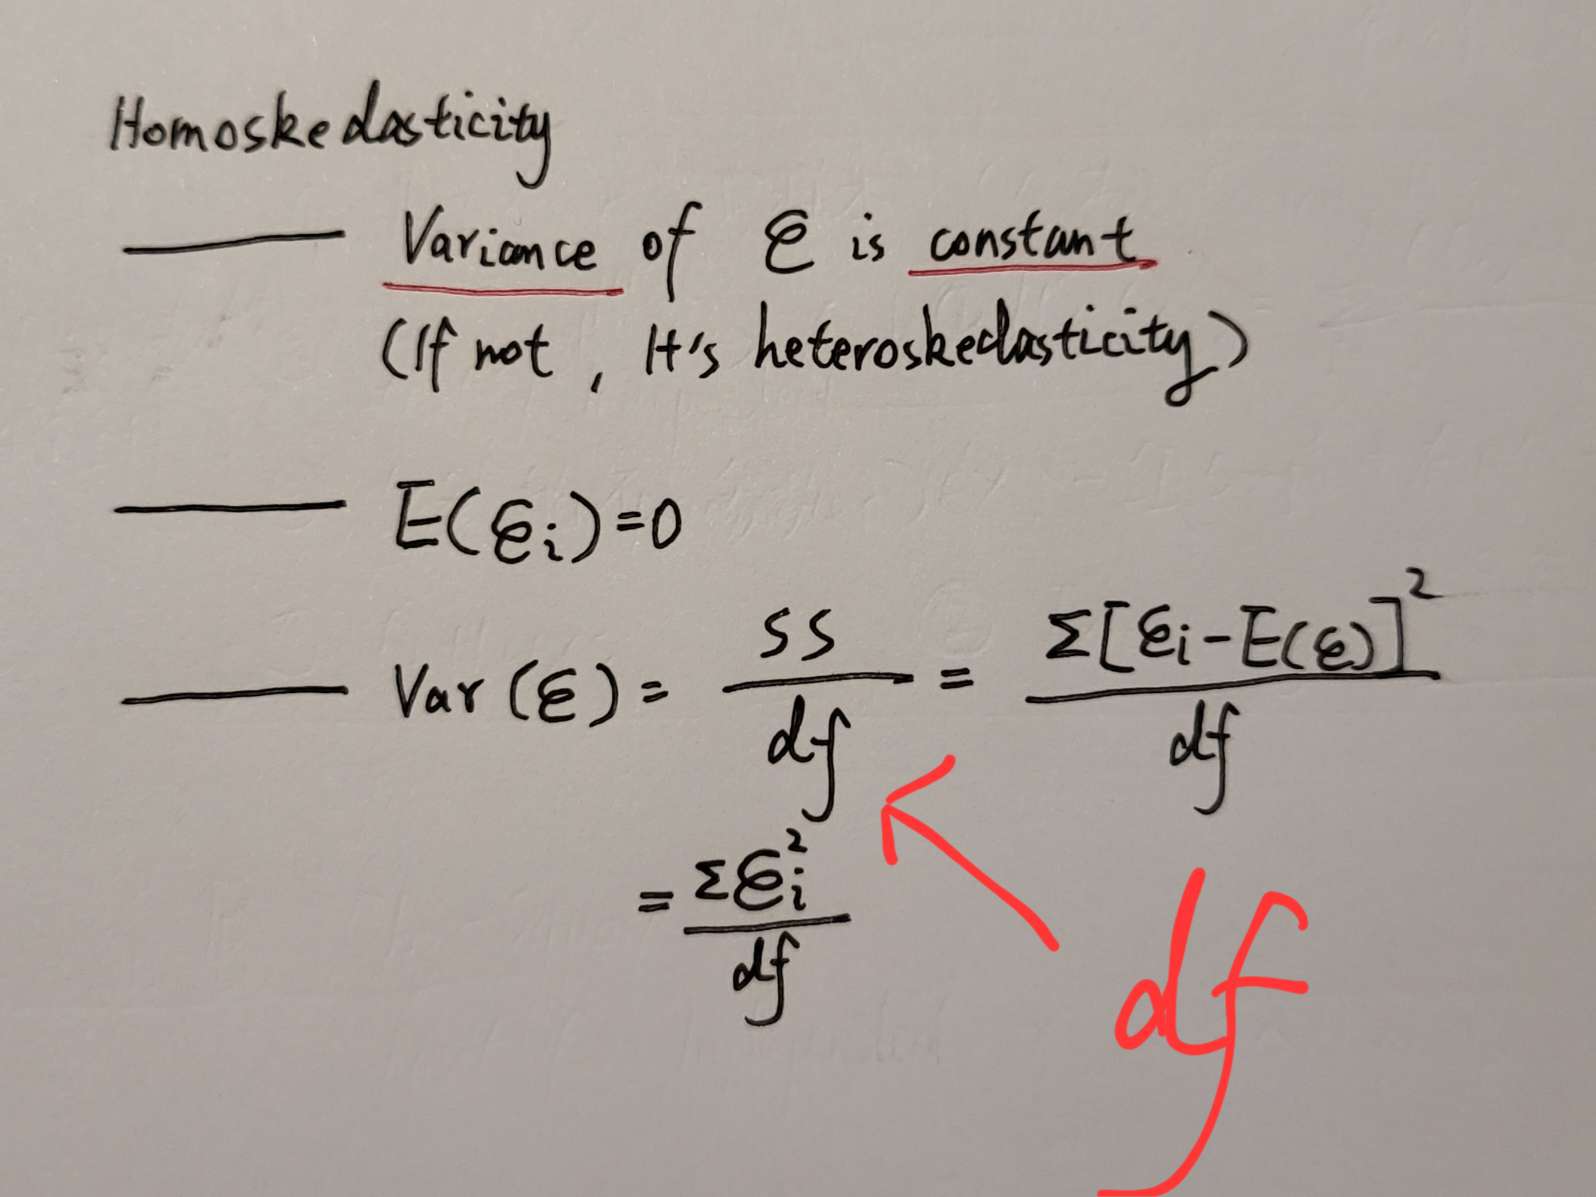 Homoskedasticity
— Variance of ε is constant
(If not, It's heteroskedasticity)
— E(εi)=0
— Var(ε) = SS/df = Σ[εi-E(ε)]²/df
= Σεi²/df
df